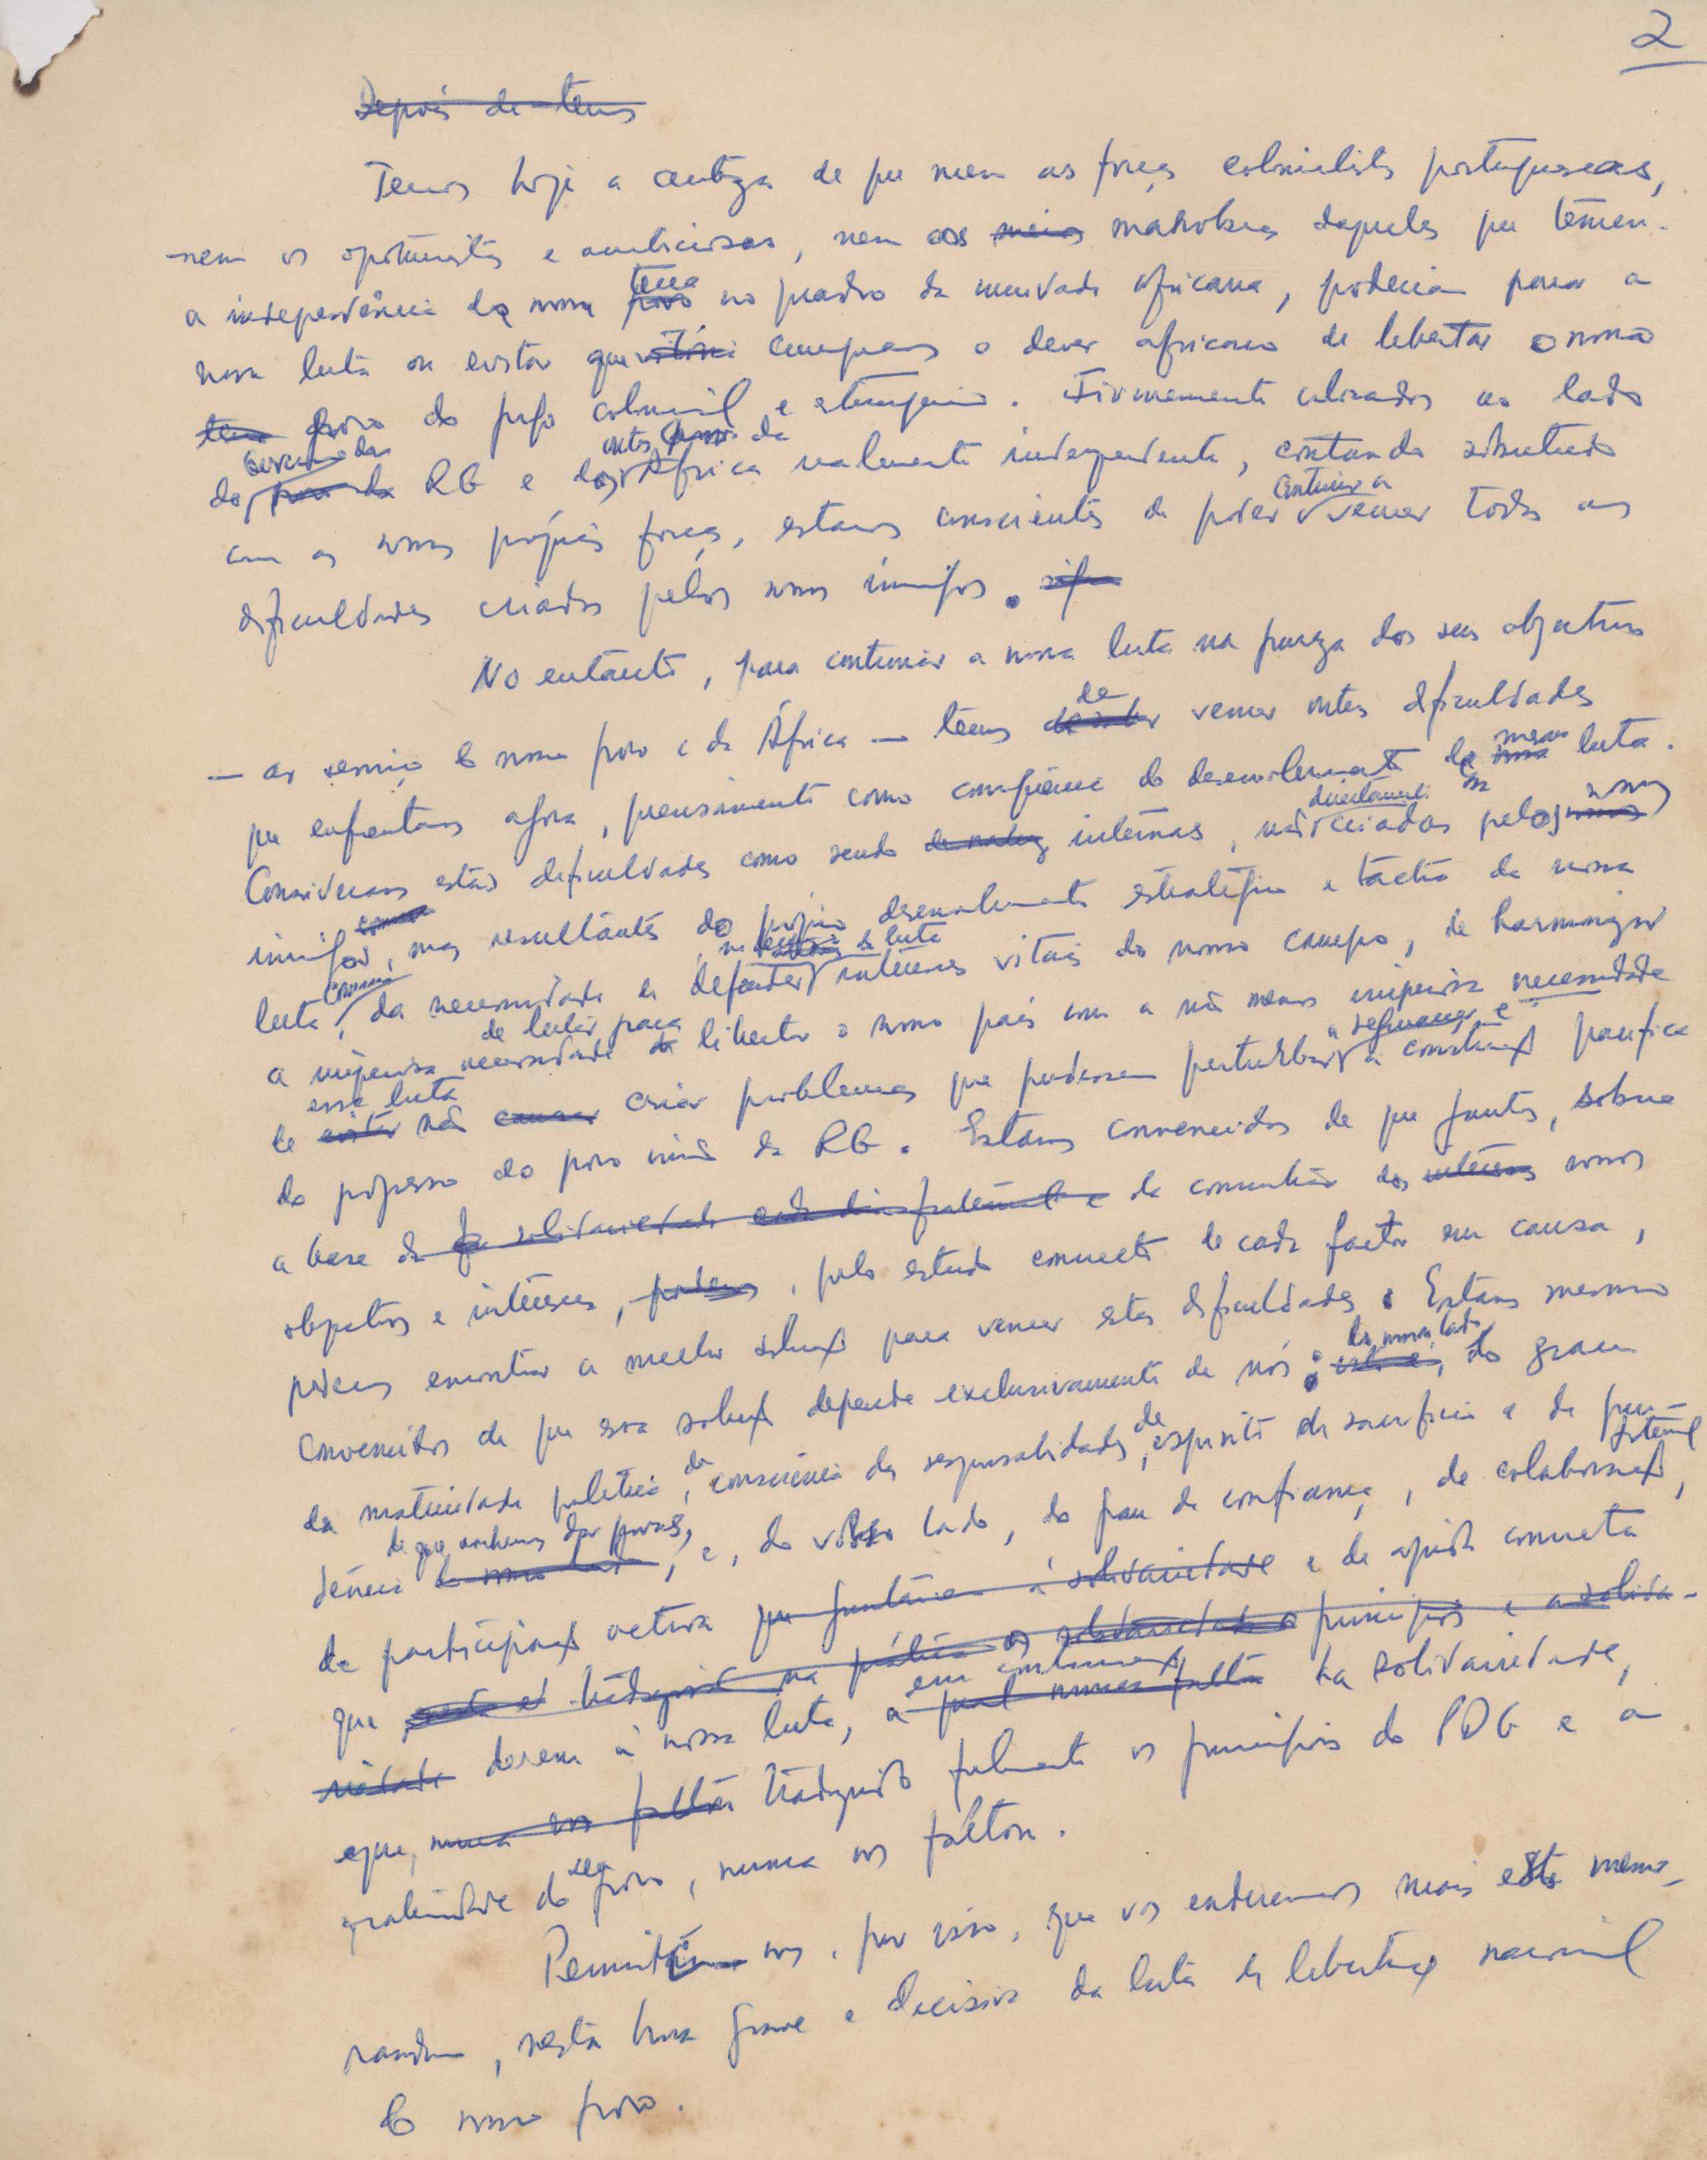 2
Depois de termos
Temos hoje a certeza de que nem as forças colonialistas portuguesas,
nem os oportunistas e ambiciosos, nem as meios manobras daqueles que temem
a independência da nossa povo terra no quadro da unidade africana, poderiam parar a
nossa luta ou evitar que cumpramos o dever africano de libertar o nosso
terra povo do jugo colonial e estrangeiro. Firmemente colocados ao lado
do povo da Governo da RG e dos outros povos da África realmente independente, contando sobretudo
com as nossas próprias forças, estamos conscientes de poder continuar a vencer todas as
dificuldades criadas pelos nossos inimigos.
No entanto, para continuar a nossa luta na pureza dos seus objectivos
— ao serviço do nosso povo e da África — temos de vencer outras dificuldades
que enfrentamos agora, precisamente como consequência do desenvolvimento da nossa mesma luta.
Consideramos estas dificuldades como sendo internas, não criadas directamente pelos nossos
inimigos, mas resultantes do próprio desenvolvimento estratégico e táctico da nossa
luta comum, da necessidade de defender no de luta interesses vitais do nosso campo, de harmonizar
a imperiosa necessidade de lutar para libertar o nosso país com a não menos imperiosa necessidade
de essa luta não causar criar problemas que pudessem perturbar a segurança e a construção pacífica
do progresso do povo irmão da RG. Estamos convencidos de que juntos, sobre
a base da solidariedade da comunhão dos interesses nossos
objectivos e interesses, podemos, pelo estudo concreto de cada factor em causa,
podemos encontrar a melhor solução para vencer estas dificuldades. Estamos mesmo
convencidos de que essa solução depende exclusivamente de nós: do nosso lado, do grau
da maturidade política, da consciência das responsabilidades, de espírito de sacrifício e da pru-
dência de que soubermos dar provas, e, do vosso lado, do grau de confiança, de colaboração fraternal,
de participação activa que juntarem à solidariedade e de apoio concreto
que na prática os solidariedade princípios e a solida-
riedade derem à nossa luta, em continuação da solidariedade,
que, nunca nos faltou traduzindo fielmente os princípios do PDG e a
do seu povo, nunca nos faltou.
Permiti-nos, por isso, que vos enderecemos mais este memo-
randum, nesta hora grave e decisiva da luta de libertação nacional
do nosso povo.